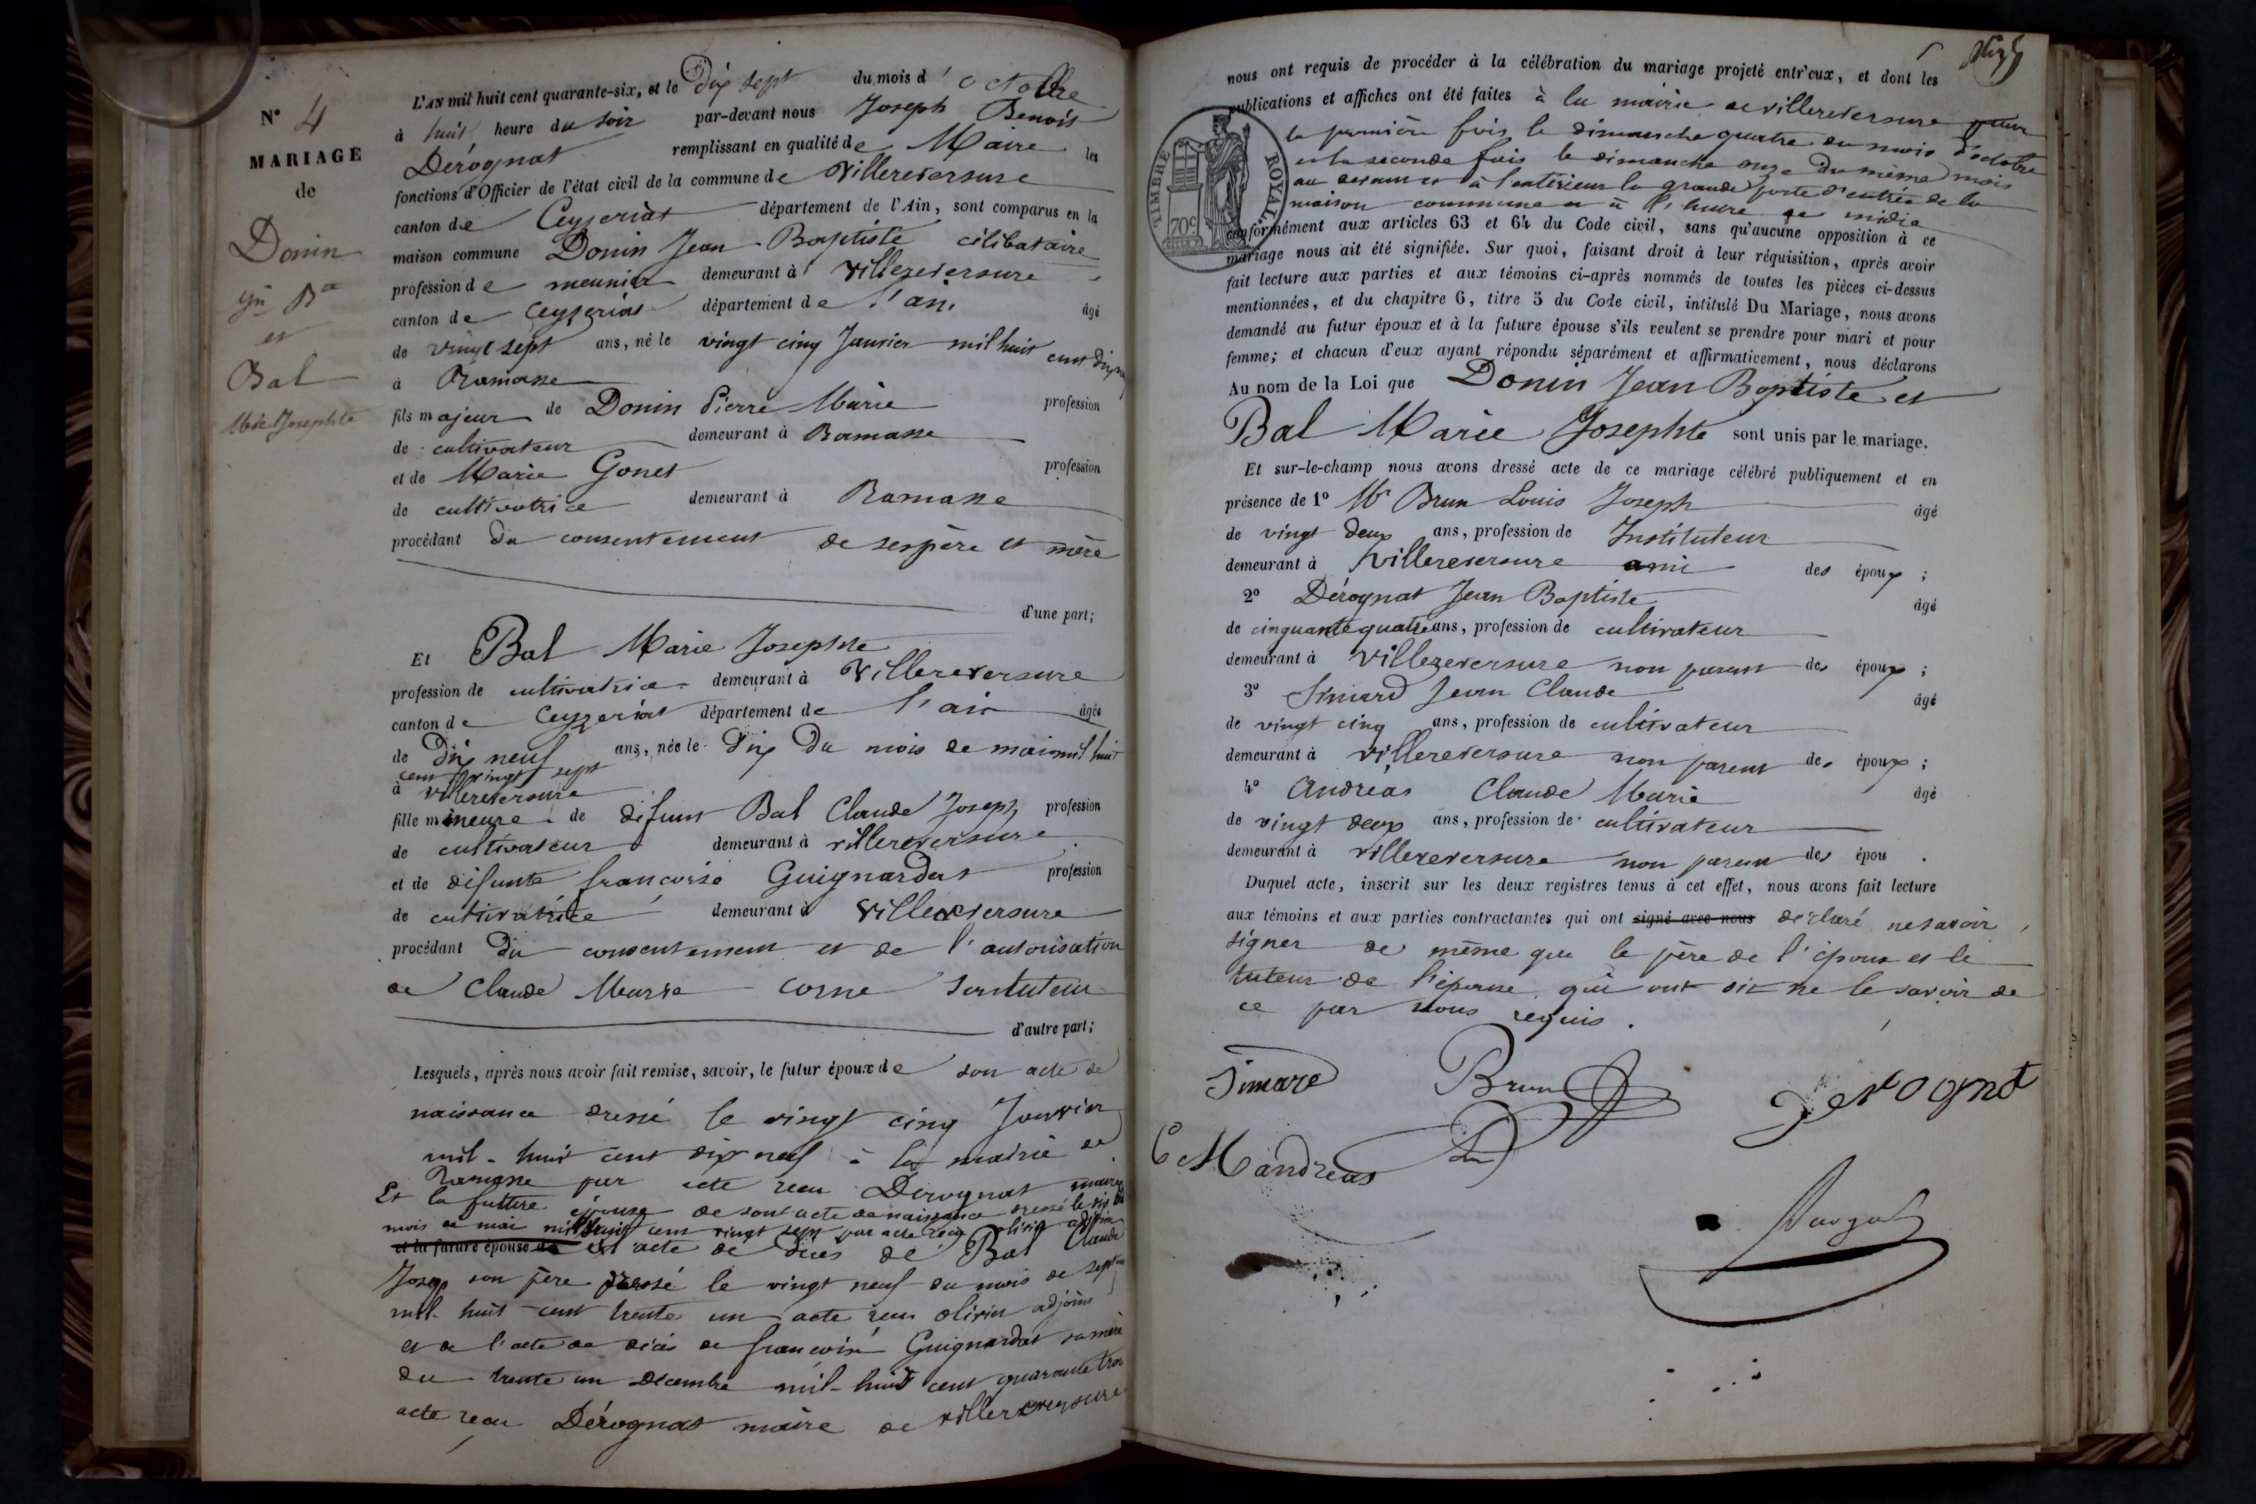 N° 4
MARIAGE
de
Donin
Jn Bte
et
Bal
Mie Josephte
L'AN mil huit cent quarante-six, et le dix sept du mois d'octobre
à huit heure du soir par-devant nous Joseph Benoit
Dérognat remplissant en qualité de Maire les
fonctions d'Officier de l'état civil de la commune de Villereversure
canton de Ceyzeriat département de l'Ain, sont comparus en la
maison commune Donin Jean Baptiste célibataire
profession de meunier demeurant à Villereversure
canton de Ceyzeriat département de l'ain âgé
de vingt sept ans, né le vingt cinq Janvier mil huit cent dix neuf
à Ramasse
fils majeur de Donin Pierre Marie profession
de cultivateur demeurant à Ramasse
et de Marie Gonet profession
de cultivatrice demeurant à Ramasse
procédant du consentement de ses père et mère
d'une part;
Et Bal Marie Josephte
profession de cultivatrice demeurant à Villereversure
canton de Ceyzeriat département de l'ain âgée
de Dix neuf ans, née le dix du mois de mai mil huit
cent vingt sept
à villereversure
fille mineure de défunt Bal Claude Joseph profession
de cultivateur demeurant à villereversure
et de défunte françoise Guignardat profession
de cultivatrice demeurant à Villereversure
procédant du consentement et de l'autorisation
de Claude Marie Corne son tuteur
d'autre part;
Lesquels, après nous avoir fait remise, savoir, le futur époux de son acte de
naissance dressé le vingt cinq Janvier
mil-huit cent dix neuf à la mairie de
Ramasse par acte reçu Dérognat maire
Et la future épouse de son acte de naissance dressé le dix du
mois de mai mil huit cent vingt sept par acte reçu olivier adjoint
et la future épouse de et acte de décès de Bal Claude
Joseph son père dressé le vingt neuf du mois de septembre
mil-huit-cent trente un acte reçu olivier adjoint
et de l'acte de décès de françoise Guignardat sa mère
du trente un décembre mil-huit cent quarante trois
acte reçu Dérognat maire de villereversure
nous ont requis de procéder à la célébration du mariage projeté entr'eux, et dont les
publications et affiches ont été faites à la mairie de villereversure pour
la première fois le dimanche quatre du mois d'octobre
et la seconde fois le dimanche onze du même mois
au devant et à l'extérieur la grande porte d'entrée de la
maison commune et à l'heure de midi
conformément aux articles 63 et 64 du Code civil, sans qu'aucune opposition à ce
mariage nous ait été signifiée. Sur quoi, faisant droit à leur réquisition, après avoir
fait lecture aux parties et aux témoins ci-après nommés de toutes les pièces ci-dessus
mentionnées, et du chapitre 6, titre 5 du Code civil, intitulé Du Mariage, nous avons
demandé au futur époux et à la future épouse s'ils veulent se prendre pour mari et pour
femme; et chacun d'eux ayant répondu séparément et affirmativement, nous déclarons
Au nom de la Loi que Donin Jean Baptiste et
Bal Marie Josephte sont unis par le mariage.
Et sur-le-champ nous avons dressé acte de ce mariage célébré publiquement et en
présence de 1° Mr Brun Louis Joseph âgé
de vingt deux ans, profession de Instituteur
demeurant à Villereversure ami des époux ;
2° Dérognat Jean Baptiste âgé
de cinquante quatre ans, profession de cultivateur
demeurant à Villereversure non parent des époux ;
3° Simard Jean Claude âgé
de vingt cinq ans, profession de cultivateur
demeurant à villereversure non parent des époux ;
4° Andréas Claude Marie âgé
de vingt deux ans, profession de cultivateur
demeurant à villereversure non parent des épou .
Duquel acte, inscrit sur les deux registres tenus à cet effet, nous avons fait lecture
aux témoins et aux parties contractantes qui ont signé avec nous déclaré ne savoir
signer de même que le père de l'époux et le
tuteur de l'épouse qui ont dit ne le savoir de
ce par nous requis.
TIMBRE ROYAL
70c
Simard
Brun
Derognat
C M andreas